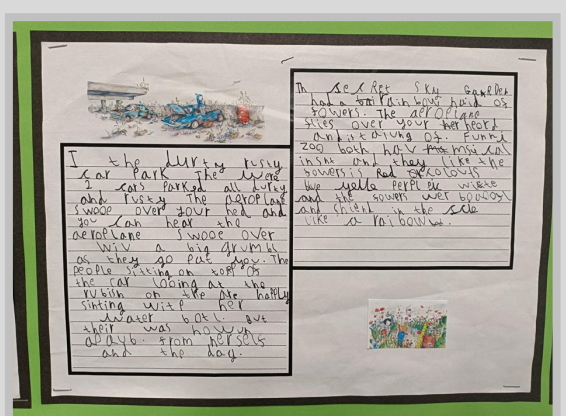 I the durty rusty
car park The were
2 cars parked all durty
and rusty The aeroplane
swooe over your hed and
you can hear the
aeroplane swooe over
wiv a big grumbl
as they go pat you. The
people sitting on top of
the car looing at the
rubish on the
sinting wite her
water botl. But
their was
from herselfs
and the day.
In secret sky garden
had a rainbow of
fowers. The aeroplane
flies over your heard
and it of. Funny
zoo both hav
insnt and they like the
fowers is Red
blue yelle perpl wiite
and the fowers wer
and shient in the
like a rainbow